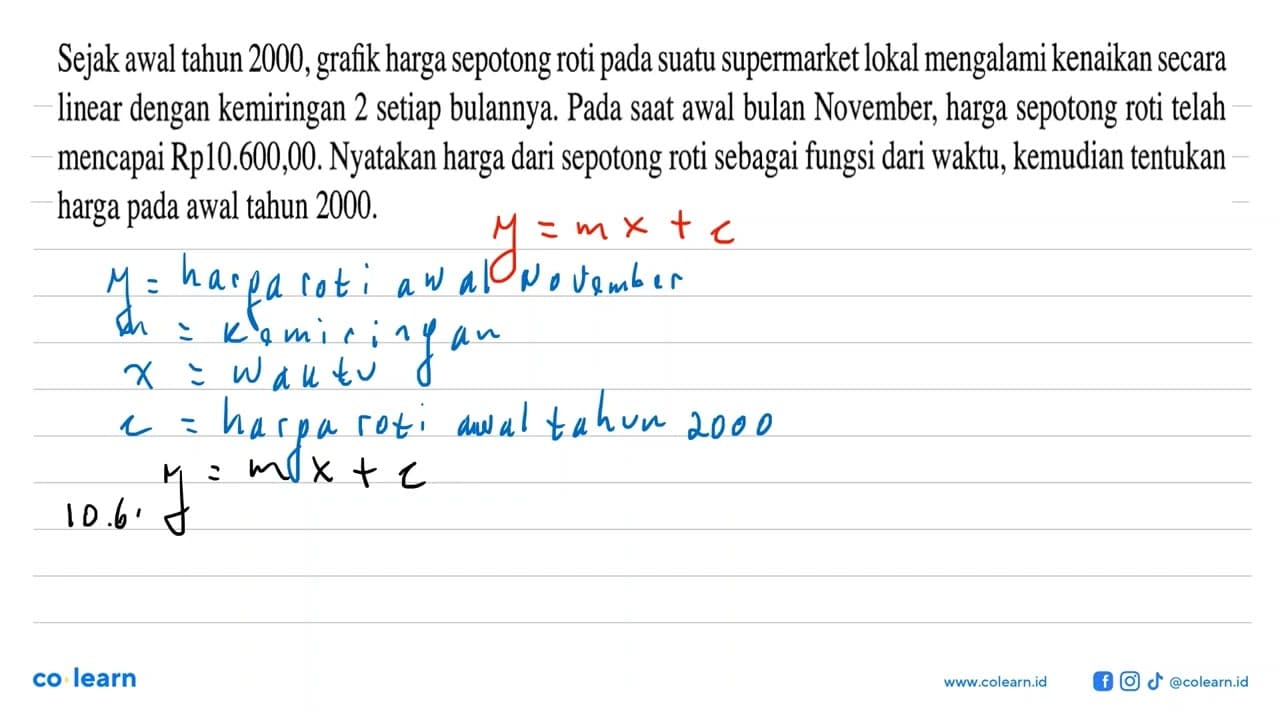 Sejak awal tahun 2000, grafik harga sepotong roti pada suatu supermarket lokal mengalami kenaikan secara
linear dengan kemiringan 2 setiap bulannya. Pada saat awal bulan November, harga sepotong roti telah
mencapai Rp10.600,00. Nyatakan harga dari sepotong roti sebagai fungsi dari waktu, kemudian tentukan
harga pada awal tahun 2000.
y = mx + c
y = harga roti awal November
m = kemiringan
x = waktu
c = harga roti awal tahun 2000
y = mx + c
10.6
co learn
www.colearn.id
@colearn.id